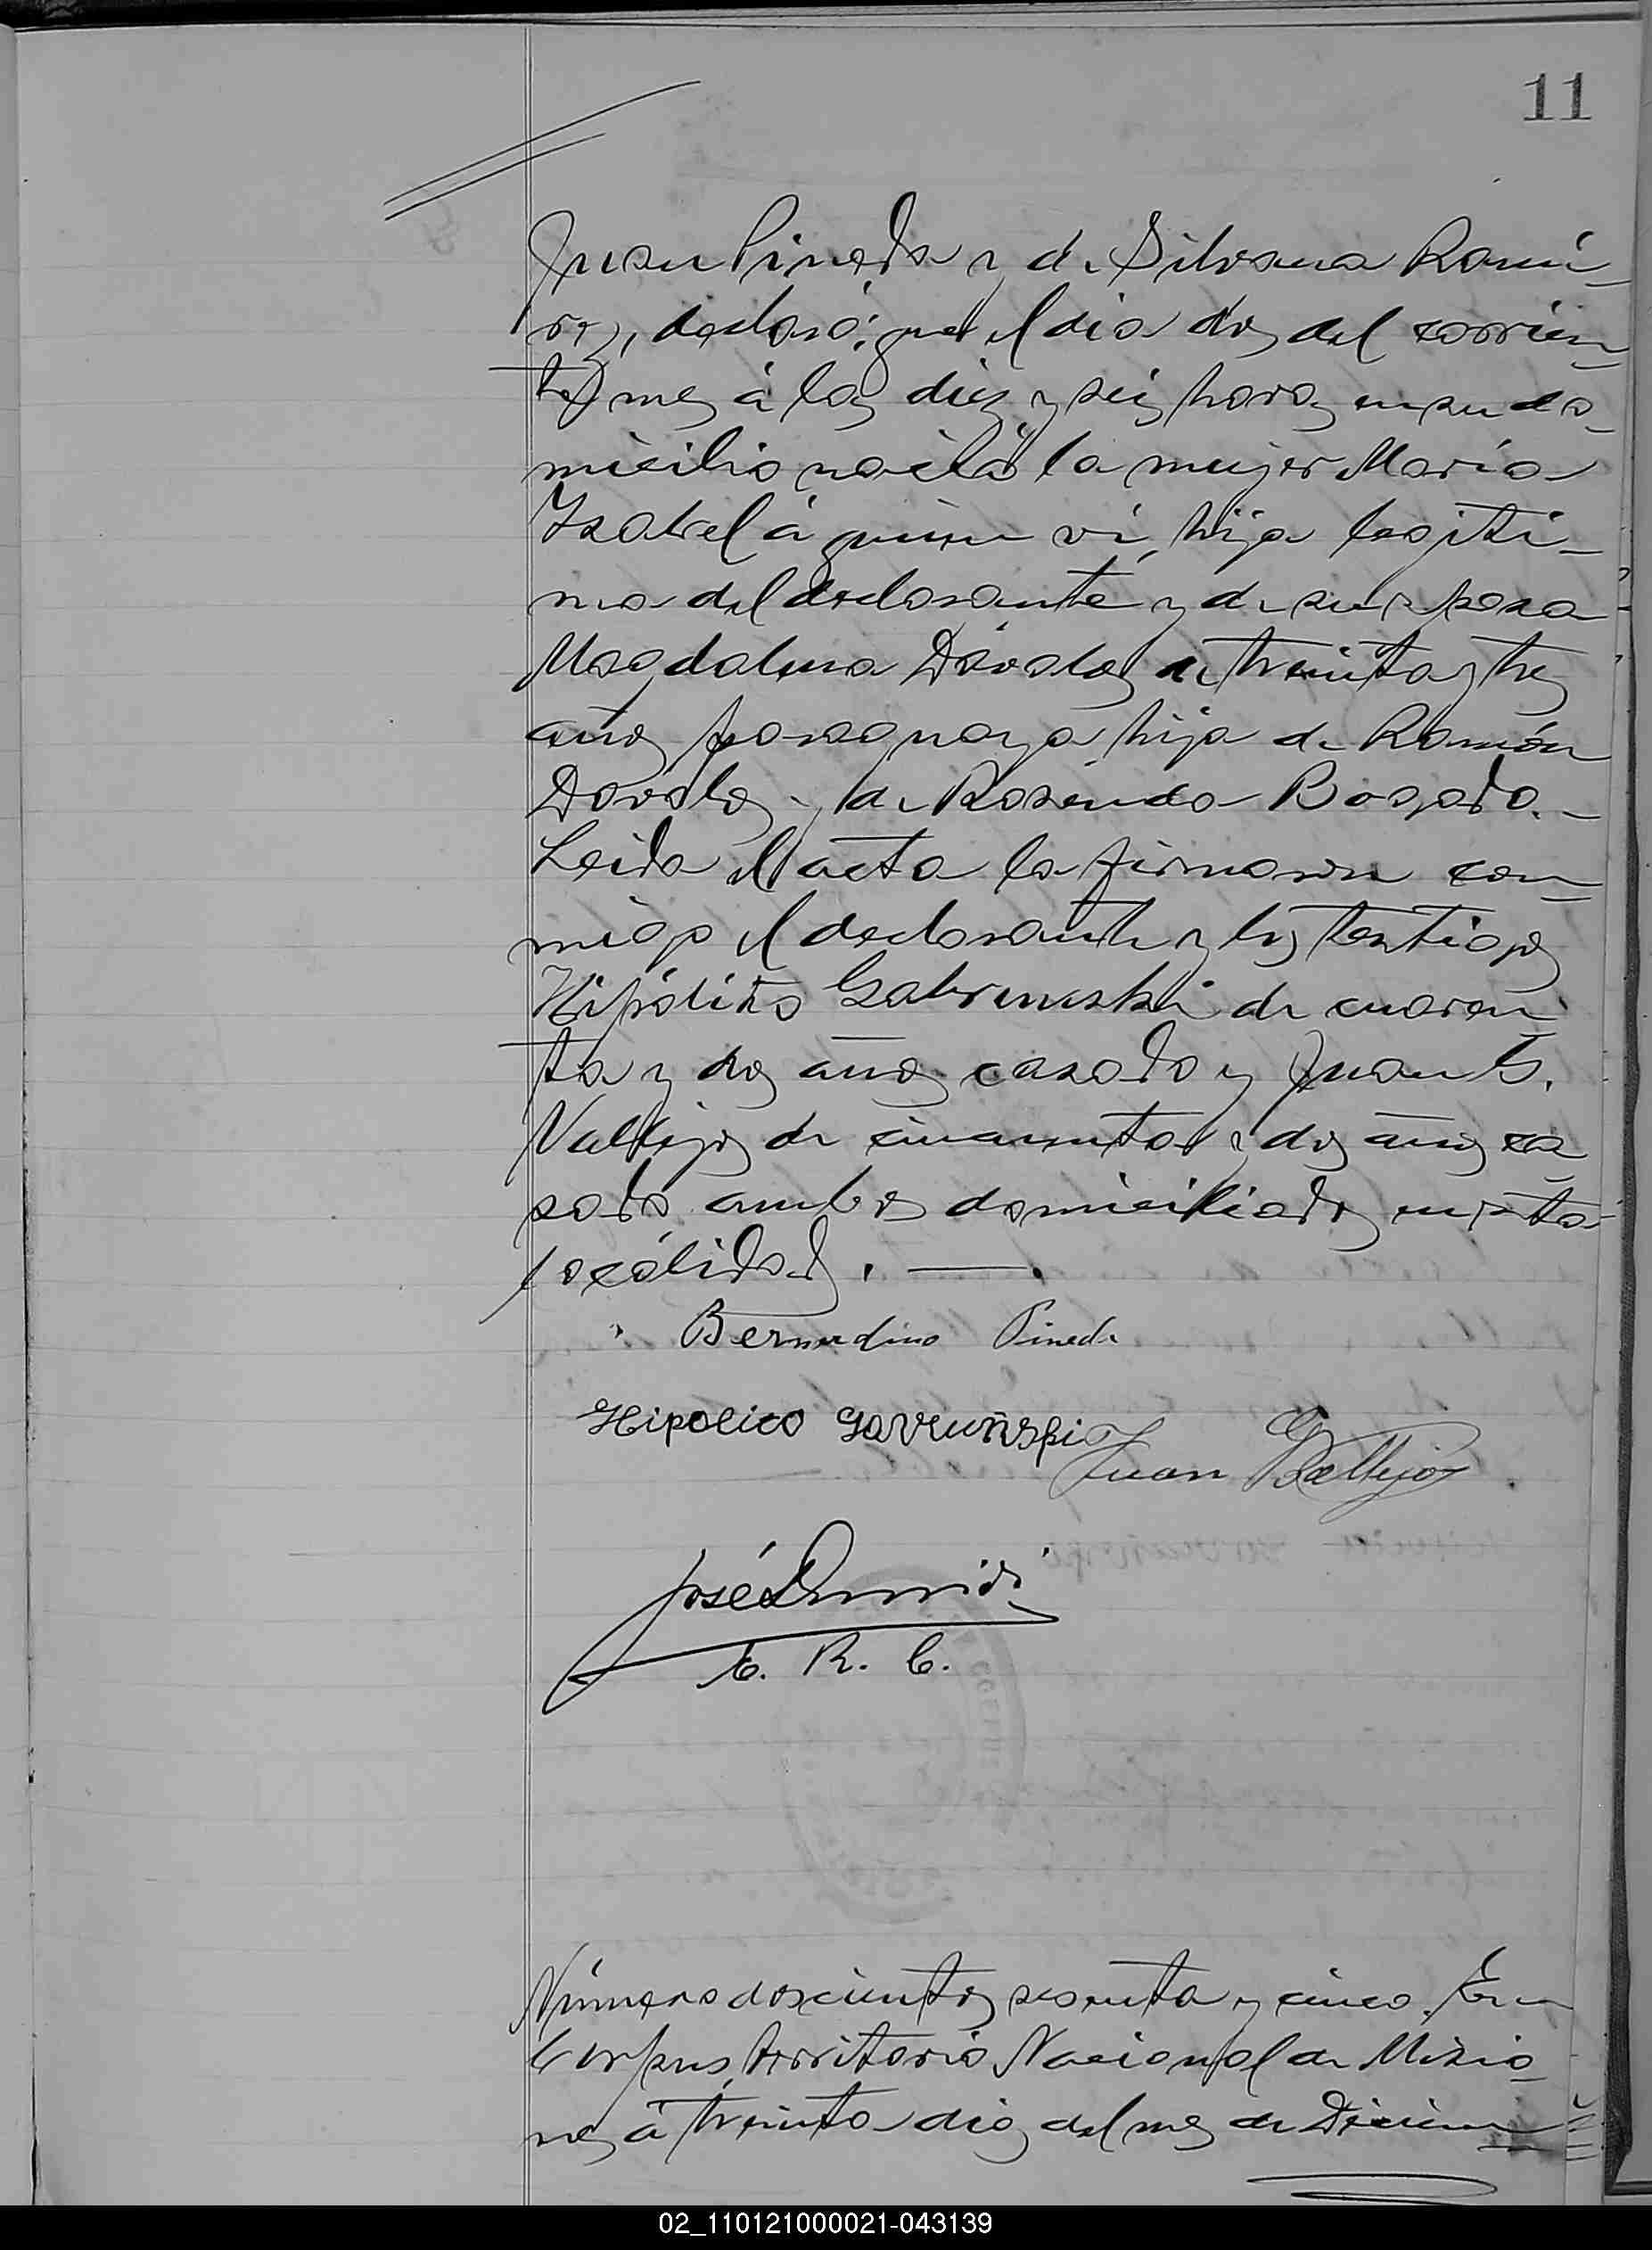 11
Juan Pineda y de Silvana Ramí-
rez, declaró: que el dia dos del corrien-
te mes á las diez y seis horas en su do-
micilio nació la mujer María
Ysabel á quien ví, hija legiti-
ma del declarante y de su esposa
Magdalena Dávalos de treinta y tres
años paraguaya hija de Ramón
Davalos y de Rosenda Bogado.-
Leida el acta la firmaron con-
migo el declarante y los testigos
Hipólito de cuaren-
ta y dos años casado y Juan G.
Vallejos de cincuenta y dos años ca-
sado ambos domiciliados en esta
localidad. —.
Bernardino Pineda
Hipolito
Juan G Vallejos
José
E. R. C.
Número doscientos sesenta y cinco. En
Corpus, territorio Nacional de Misio-
nes á treinta dias del mes de Diciem-
02_110121000021-043139